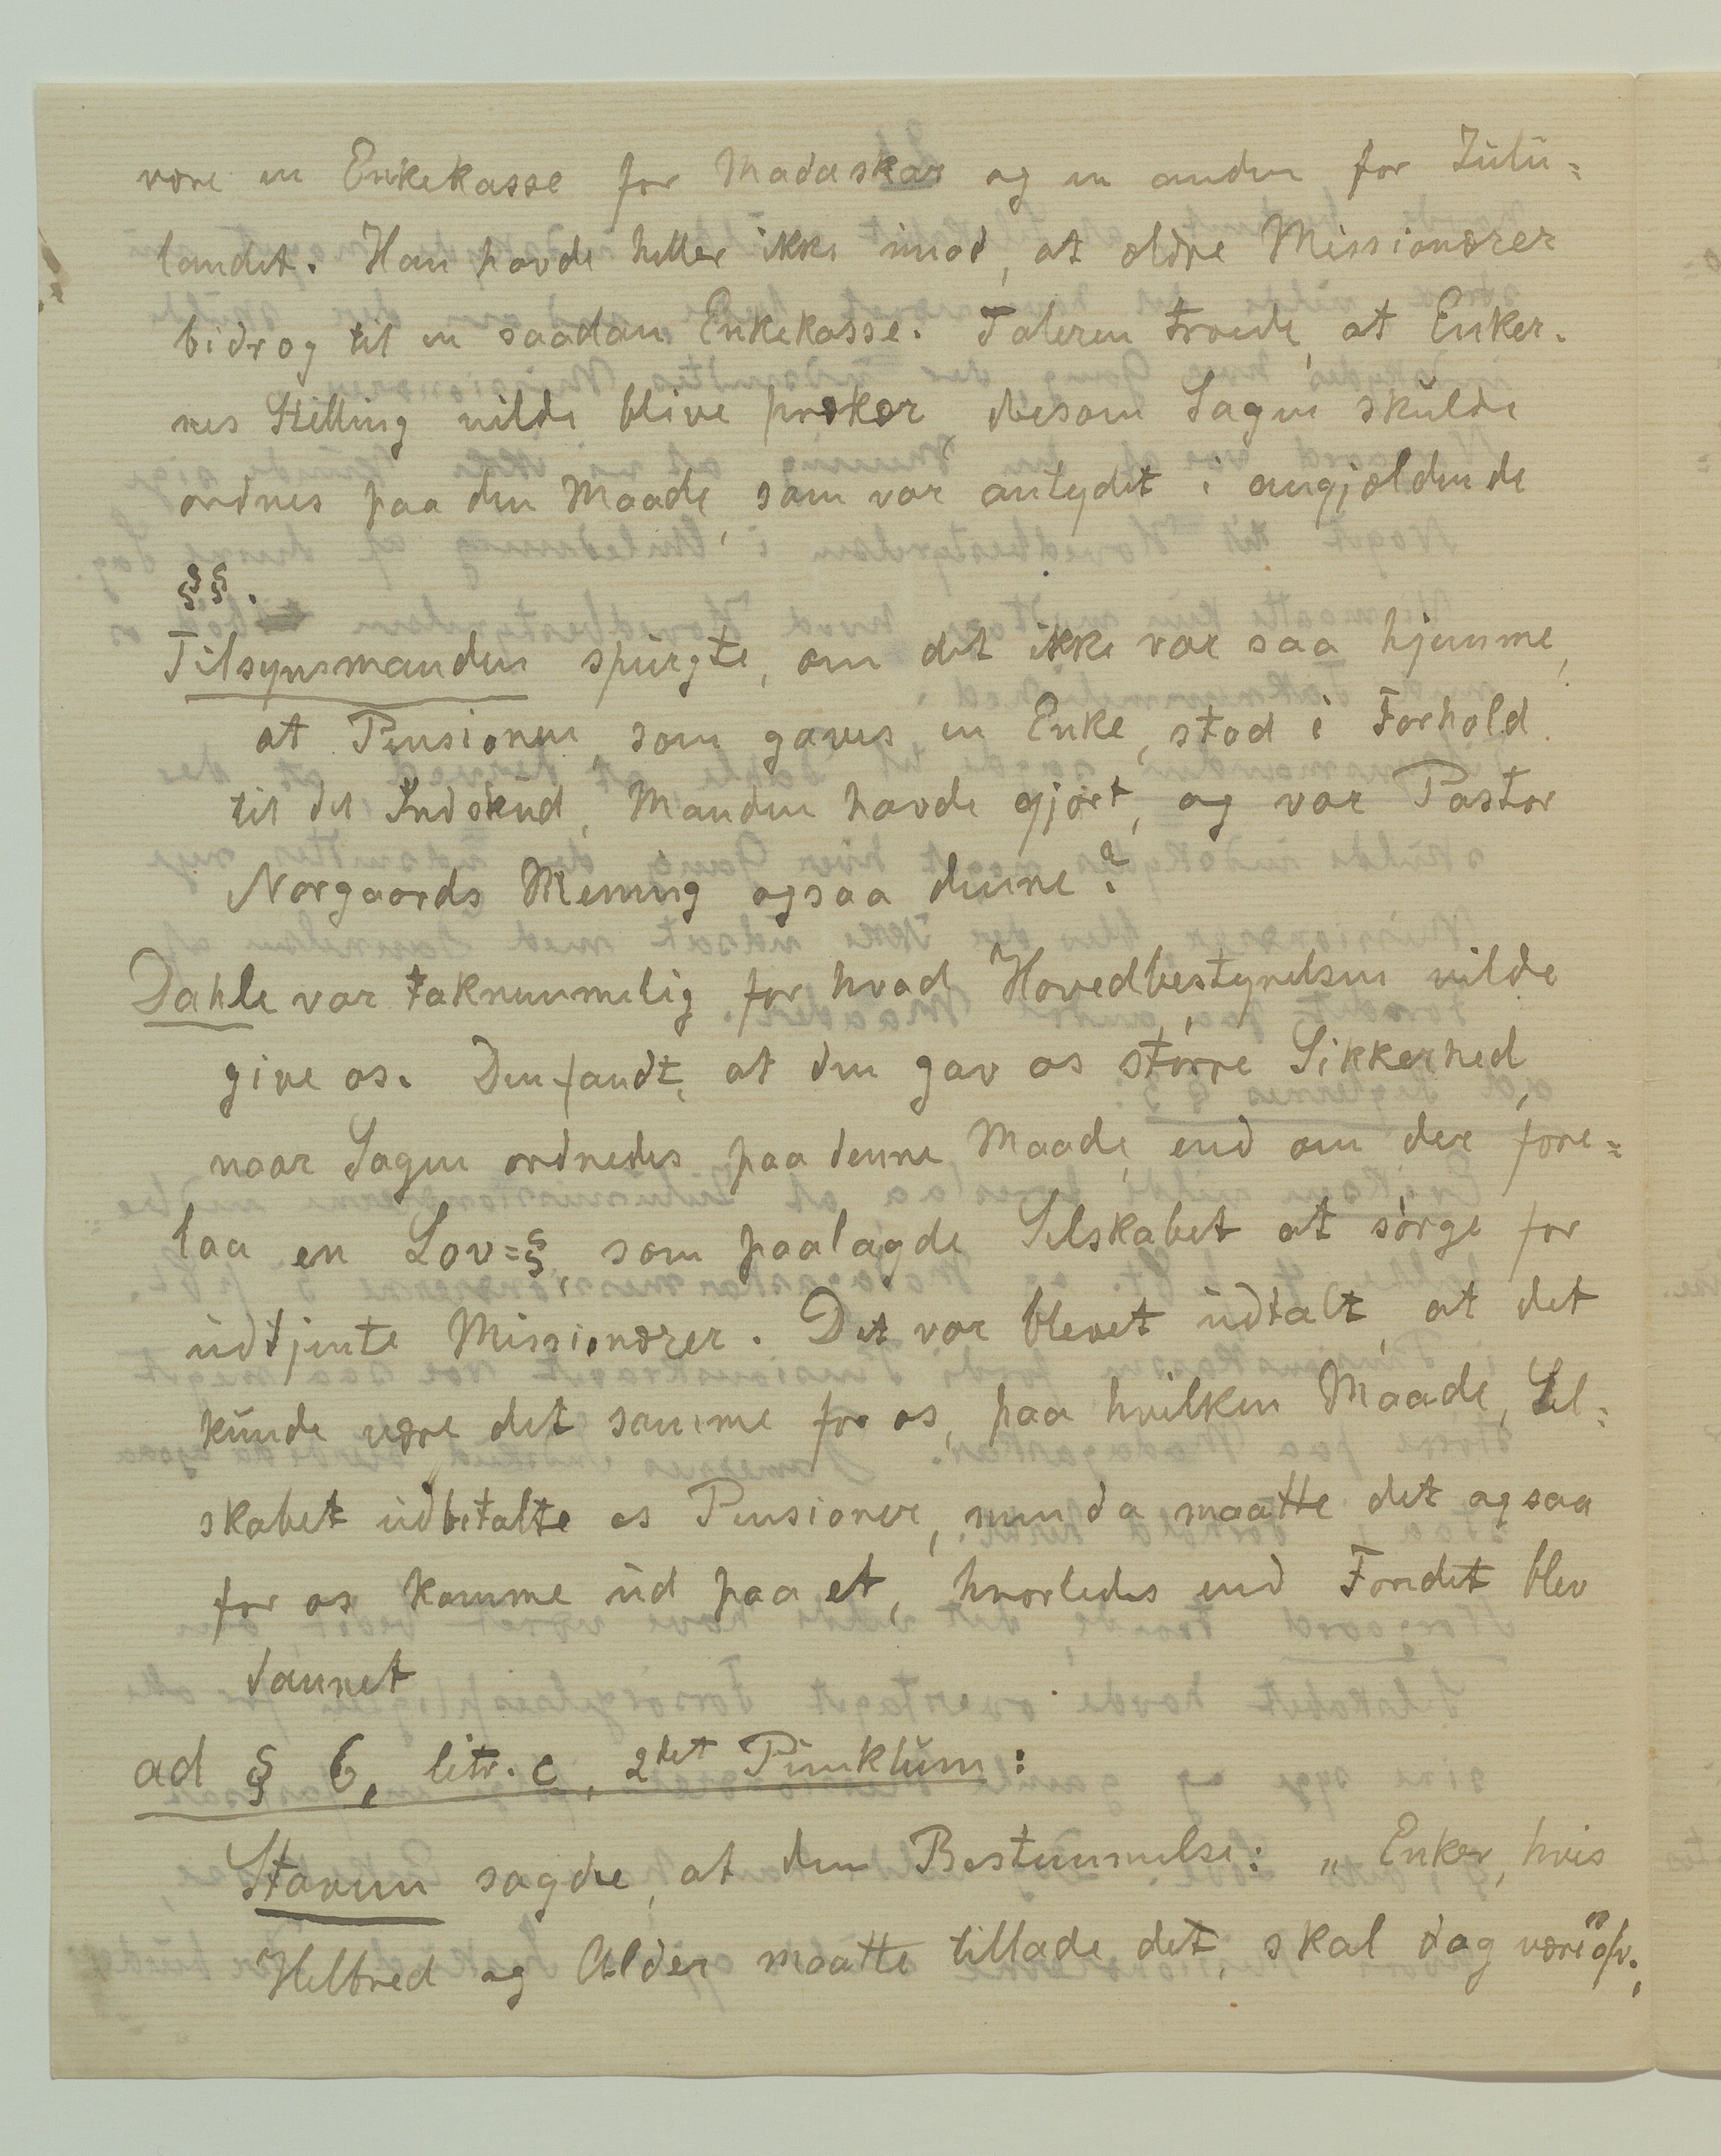 være en Enkekasse for Madaskar og en anden for Zulu=
landet. Han havde heller ikke imod, at ældre Missionærer
bidrog til en saadan Enkekasse. Taleren troede, at Enker-
nes Stilling vilde blive prekær dersom Sagen skulde
ordnes paa den Maade, som var antydet i angjældende
§§.
Tilsynsmanden spurgte, om det ikke var saa hjemme,
at Pensionen, som gaves en Enke, stod i Forhold
til det Indskud, Manden havde gjørt, og var Pastor
Norgaards Mening ogsaa denne?
Dahle var taknemmelig for hvad Hovedbestyrelsen vilde
give os. Den fandt, at den gav os større Sikkerhed,
naar Sagen ordnedes paa denne Maade, end om der fore=
laa en Lov=§, som paalagde Selskabet at sørge for
udtjente Missionærer. Det var blevet udtalt, at det
kunde være det samme for os, paa hvilken Maade, Sel=
skabet udbetalte os Pensioner, men da maatte det ogsaa
for os komme ud paa et, hvorledes end Fondet blev
dannet
ad § 6, litr. c, 2det Punktum:
Stavem sagde, at den Bestemmelse: „Enker, hvis
Helbred og Alder maatte tillade det, skal dog være" ofv.,